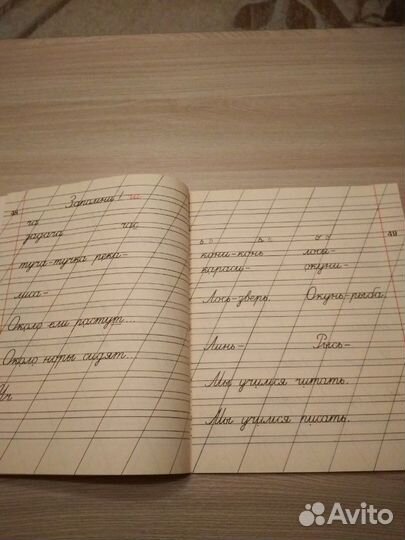 48
Запомни! ча
ча
задача час
туча-тучка река-
лиса-
Около ели растут...
Около норы сидят...
49
кони-конь лоси-
караси- окуни-
Лось-зверь. Окунь-рыба.
Линь- Рысь-
Мы учимся читать.
Мы учимся писать.
Avito